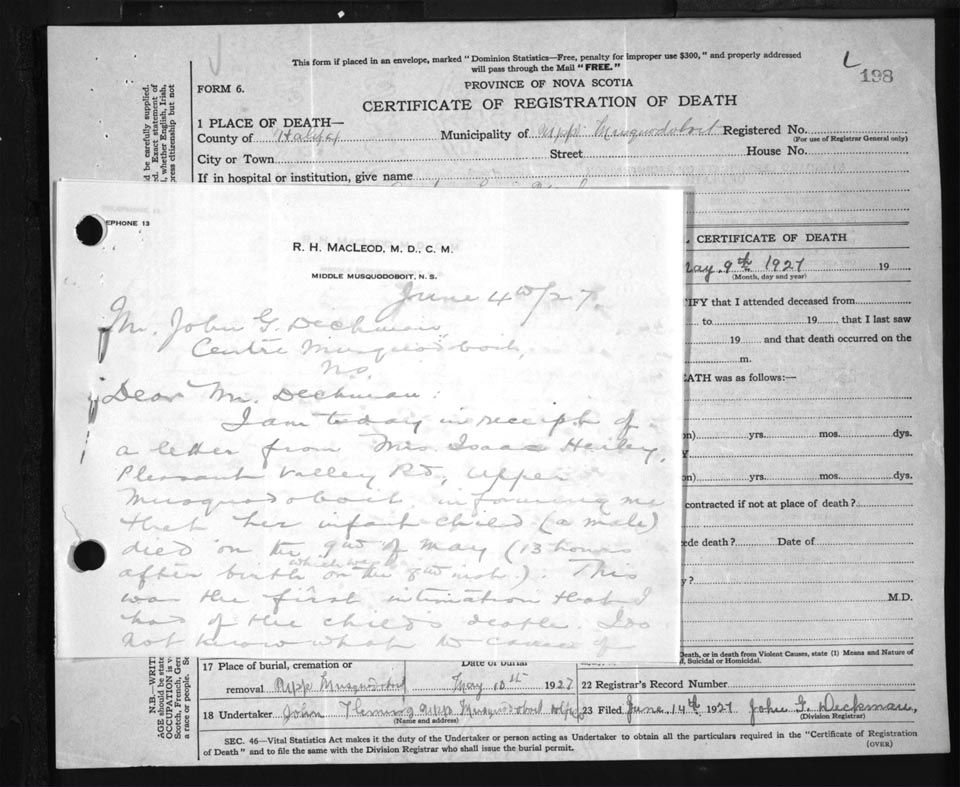 This form if placed in an envelope, marked "Dominion Statistics—Free, penalty for improper use $300," and properly addressed
will pass through the Mail "FREE."
L
198
FORM 6.
PROVINCE OF NOVA SCOTIA
CERTIFICATE OF REGISTRATION OF DEATH
1 PLACE OF DEATH—
County of Halifax Municipality of Upp. Musquodoboit Registered No.
(For use of Registrar General only)
City or Town Street House No.
If in hospital or institution, give name
be carefully supplied.
ed. Exact statement of
, whether English, Irish,
press citizenship but not
EPHONE 13
R. H. MacLEOD, M. D., C. M.
MIDDLE MUSQUODOBOIT, N. S.
June 4th/27.
Mr. John G. Deckman,
Centre Musquodoboit,
N.S.
Dear Mr. Deckman:
I am today in receipt of
a letter from Mrs. Isaac
Pleasant Valley Rd, Upper
Musquodoboit informing me
that her infant child (a male)
died on the 9th of May (13 hours
after birth which was on the 8th inst.). This
was the first intimation that I
had of the child's death. I do
not know what the cause of
CERTIFICATE OF DEATH
May 9th 1927 19
(Month, day and year)
IFY that I attended deceased from
to 19 that I last saw
19 and that death occurred on the
m.
EATH was as follows:—
on) yrs. mos. dys.
Y
on) yrs. mos. dys.
contracted if not at place of death?
ede death? Date of
y?
M.D.
Death, or in death from Violent Causes, state (1) Means and Nature of
, Suicidal or Homicidal.
17 Place of burial, cremation or
removal Upp Musquodoboit
Date of burial
May 10th 1927
22 Registrar's Record Number
18 Undertaker John Fleming Upp Musquodoboit
(Name and address)
23 Filed June 14th 1927 John G. Deckman,
(Division Registrar)
N.B.—WRIT
AGE should be state
OCCUPATION is v
Scotch, French, Gerr
a race or people. Se
SEC. 46—Vital Statistics Act makes it the duty of the Undertaker or person acting as Undertaker to obtain all the particulars required in the "Certificate of Registration
of Death" and to file the same with the Division Registrar who shall issue the burial permit.
(OVER)